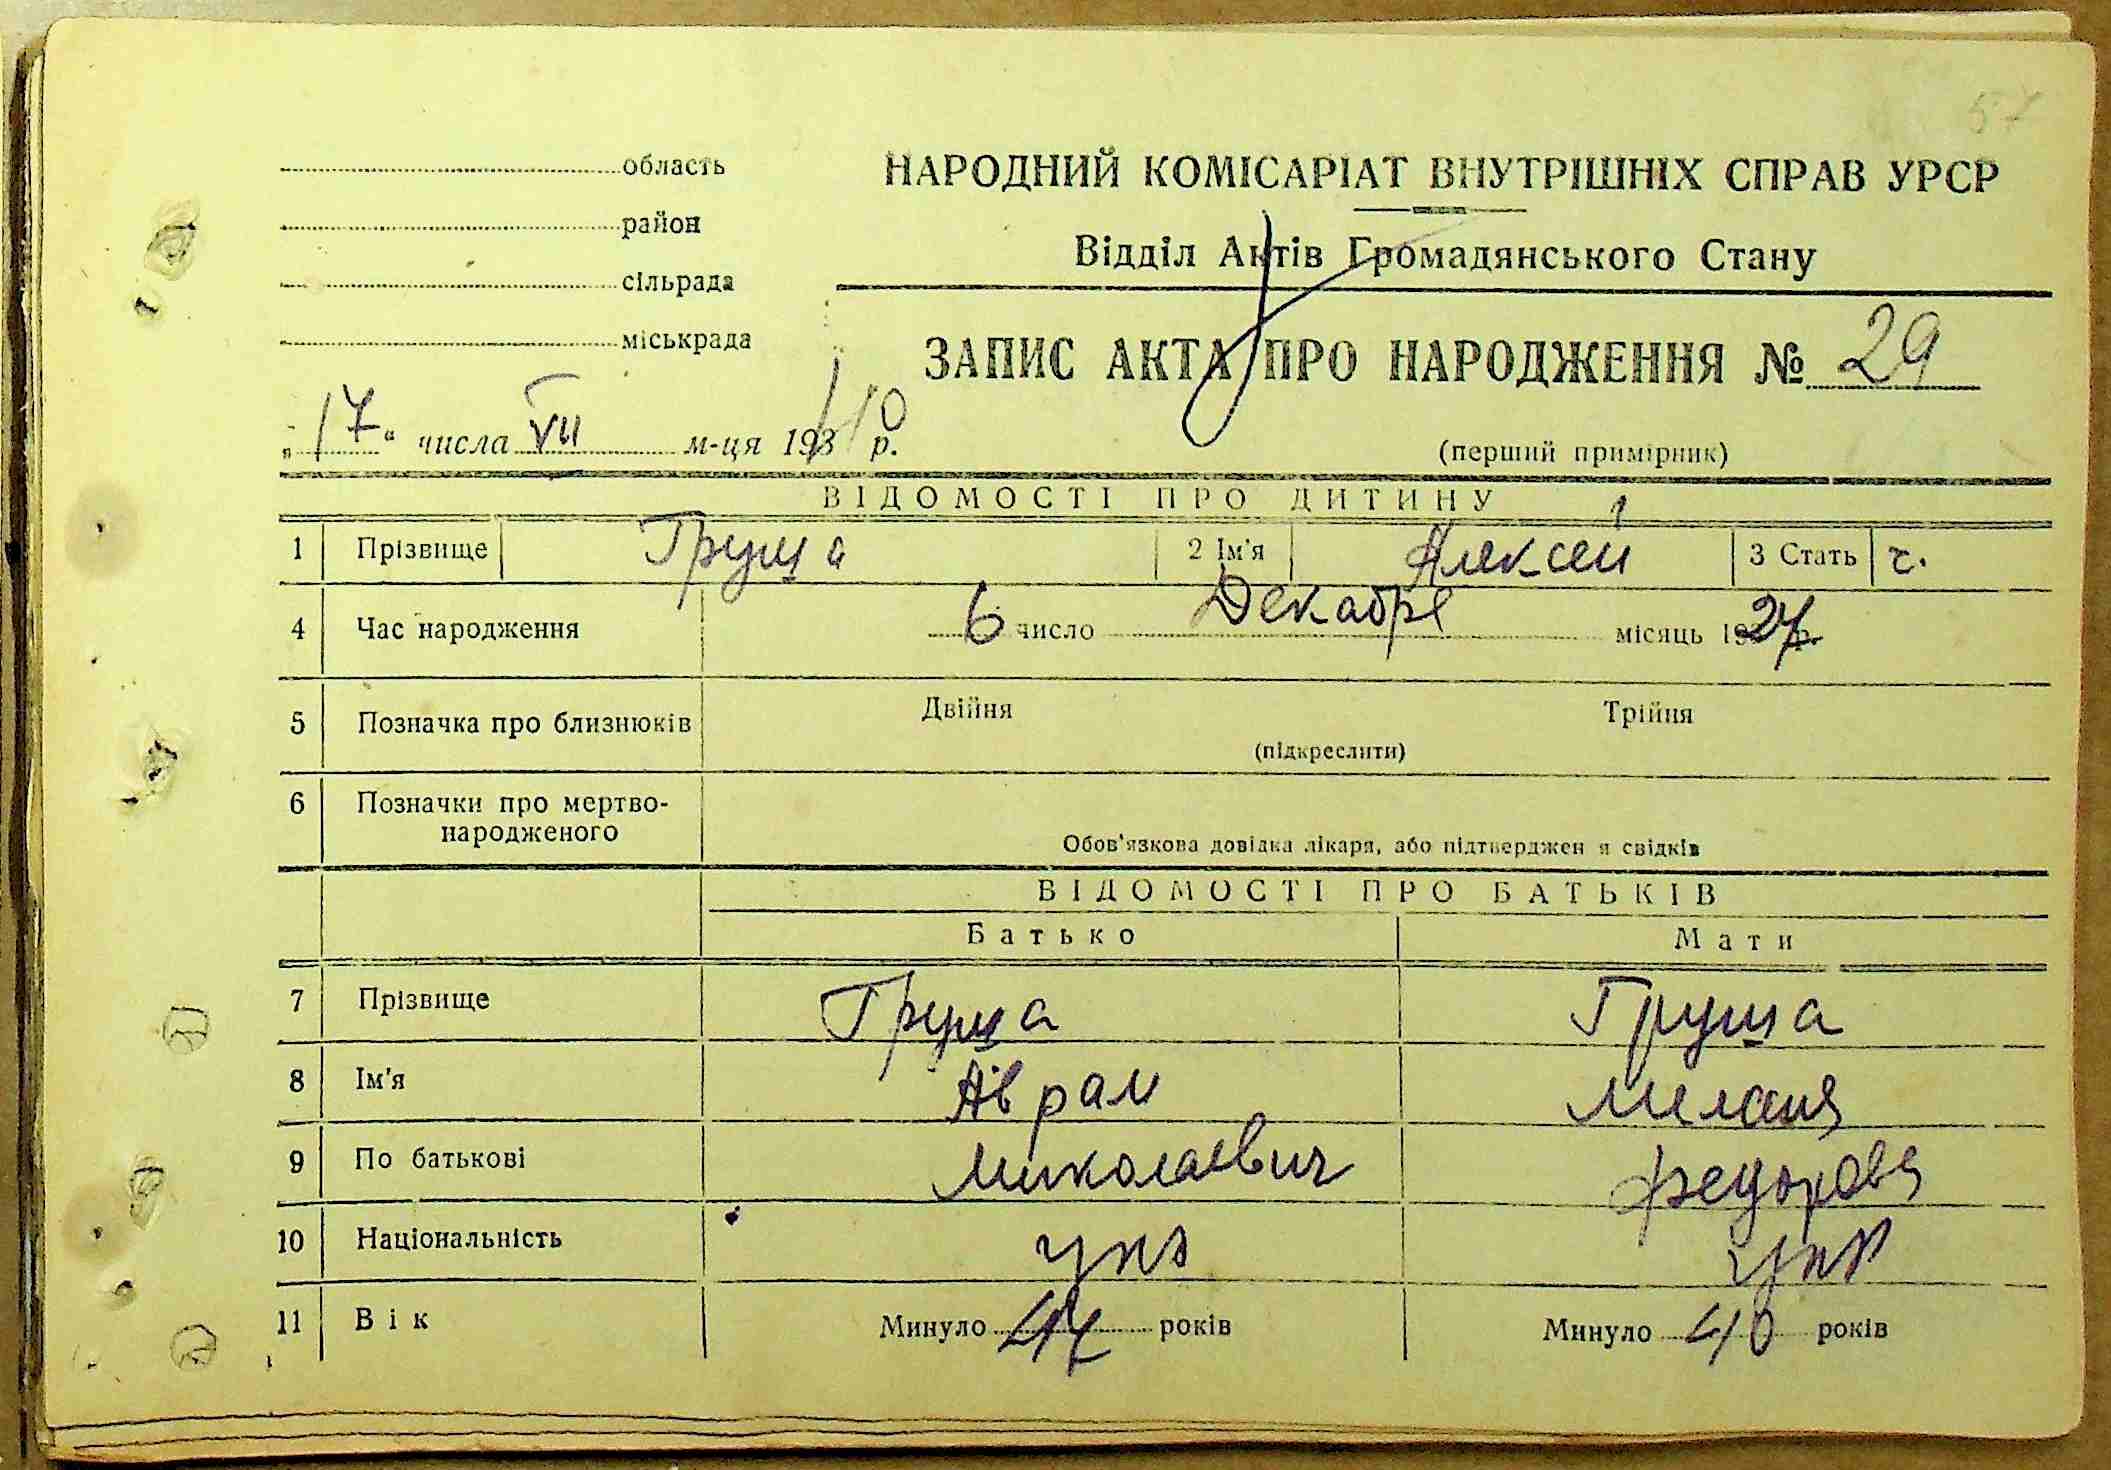 57
область
НАРОДНИЙ КОМІСАРІАТ ВНУТРІШНІХ СПРАВ УРСР
район
Відділ Актів Громадянського Стану
сільрада
міськрада
ЗАПИС АКТА ПРО НАРОДЖЕННЯ № 29
„17“ числа VII м-ця 1940 р.
(перший примірник)
ВІДОМОСТІ ПРО ДИТИНУ
1 Прізвище Груша 2 Ім'я Алексей 3 Стать ч.
4 Час народження 6 число Декабре місяць 1927 р.
5 Позначка про близнюків Двійня Трійня
(підкреслити)
6 Позначки про мертво-
народженого
Обов'язкова довідка лікаря, або підтверджен я свідків
ВІДОМОСТІ ПРО БАТЬКІВ
Батько Мати
7 Прізвище Груша Груша
8 Ім'я Аврам Мелання
9 По батькові Миколаевич Федоровя
10 Національність укр укр
11 Вік Минуло 47 років Минуло 40 років